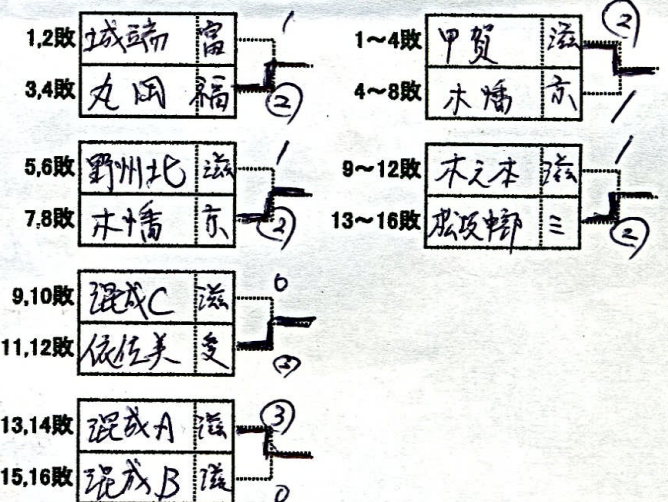 1,2敗 城端 富 1
3,4敗 丸岡 福 ②
5,6敗 野州北 滋 1
7,8敗 木幡 京 ②
9,10敗 混成C 滋 0
11,12敗 依佐美 愛 ③
13,14敗 混成A 滋 ③
15,16敗 混成B 滋 0
1～4敗 甲賀 滋 ②
4～8敗 木幡 京 1
9～12敗 木之本 滋 1
13～16敗 松阪中部 三 ②